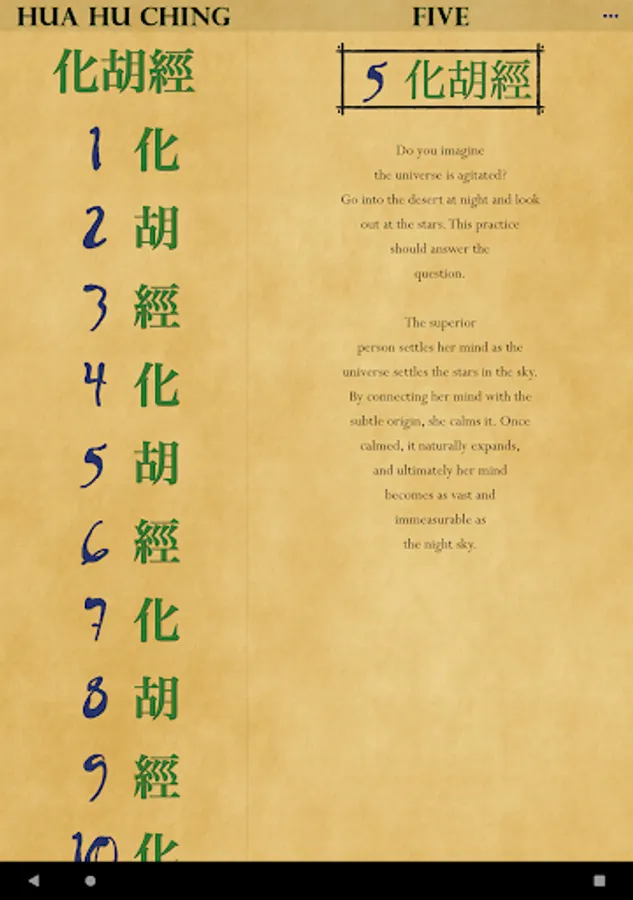 HUA HU CHING
FIVE
化胡經
1 化
2 胡
3 經
4 化
5 胡
6 經
7 化
8 胡
9 經
10 化
5 化胡經
Do you imagine
the universe is agitated?
Go into the desert at night and look
out at the stars. This practice
should answer the
question.
The superior
person settles her mind as the
universe settles the stars in the sky.
By connecting her mind with the
subtle origin, she calms it. Once
calmed, it naturally expands,
and ultimately her mind
becomes as vast and
immeasurable as
the night sky.